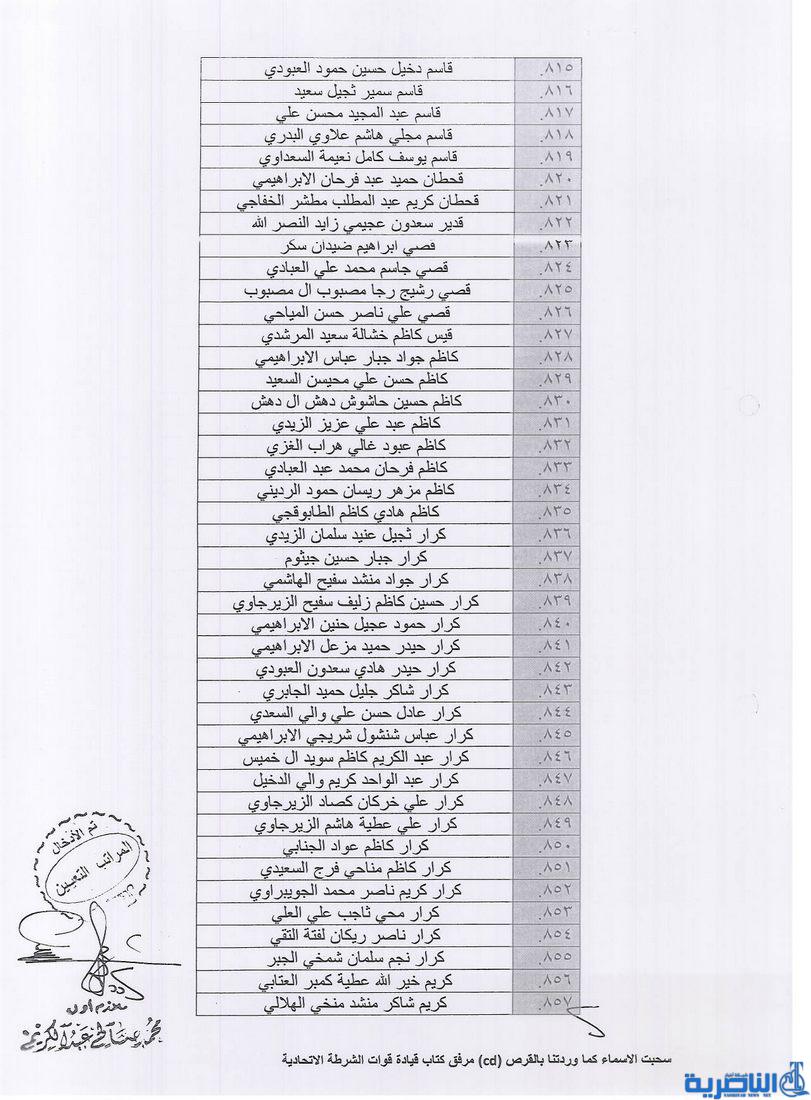 ٨١٥. قاسم دخيل حسين حمود العبودي
٨١٦. قاسم سمير ثجيل سعيد
٨١٧. قاسم عبد المجيد محسن علي
٨١٨. قاسم مجلي هاشم علاوي البدري
٨١٩. قاسم يوسف كامل نعيمة السعداوي
٨٢٠. قحطان حميد عبد فرحان الابراهيمي
٨٢١. قحطان كريم عبد المطلب مطشر الخفاجي
٨٢٢. قدير سعدون عجيمي زايد النصر الله
٨٢٣. قصي ابراهيم ضيدان سكر
٨٢٤. قصي جاسم محمد علي العبادي
٨٢٥. قصي رشيج رجا مصبوب ال مصبوب
٨٢٦. قصي علي ناصر حسن المياحي
٨٢٧. قيس كاظم خشالة سعيد المرشدي
٨٢٨. كاظم جواد جبار عباس الابراهيمي
٨٢٩. كاظم حسن علي محيسن السعيد
٨٣٠. كاظم حسين حاشوش دهش ال دهش
٨٣١. كاظم عبد علي عزيز الزيدي
٨٣٢. كاظم عبود غالي هراب الغزي
٨٣٣. كاظم فرحان محمد عبد العبادي
٨٣٤. كاظم مزهر ريسان حمود الرديني
٨٣٥. كاظم هادي كاظم الطابوقجي
٨٣٦. كرار ثجيل عنيد سلمان الزيدي
٨٣٧. كرار جبار حسين جيثوم
٨٣٨. كرار جواد منشد سفيح الهاشمي
٨٣٩. كرار حسين كاظم زليف سفيح الزيرجاوي
٨٤٠. كرار حمود عجيل حنين الابراهيمي
٨٤١. كرار حيدر حميد مزعل الابراهيمي
٨٤٢. كرار حيدر هادي سعدون العبودي
٨٤٣. كرار شاكر جليل حميد الجابري
٨٤٤. كرار عادل حسن علي والي السعدي
٨٤٥. كرار عباس شنشول شريجي الابراهيمي
٨٤٦. كرار عبد الكريم كاظم سويد ال خميس
٨٤٧. كرار عبد الواحد كريم والي الدخيل
٨٤٨. كرار علي خركان كصاد الزيرجاوي
٨٤٩. كرار علي عطية هاشم الزيرجاوي
٨٥٠. كرار كاظم عواد الجنابي
٨٥١. كرار كاظم مناحي فرج السعيدي
٨٥٢. كرار كريم ناصر محمد الجويبراوي
٨٥٣. كرار محي ثاجب علي العلي
٨٥٤. كرار ناصر ريكان لفتة التقي
٨٥٥. كرار نجم سلمان شمخي الجبر
٨٥٦. كريم خير الله عطية كمبر العتابي
٨٥٧. كريم شاكر منشد منخي الهلالي
تم الأدخال
المراتب التعيين
ملازم اول
محمد صالح عبد الكريم
سحبت الاسماء كما وردتنا بالقرص (cd) مرفق كتاب قيادة قوات الشرطة الاتحادية
شبكة اخبار
الناصرية
NASIRIYAH NEWS NET